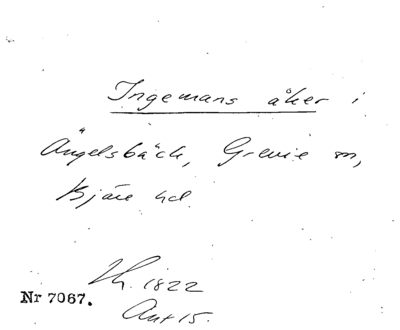 Ingemans åker i
Ängelsbäck, Grevie sn,
Bjäre hd.
1822
Nr 7067.
Ant 15.